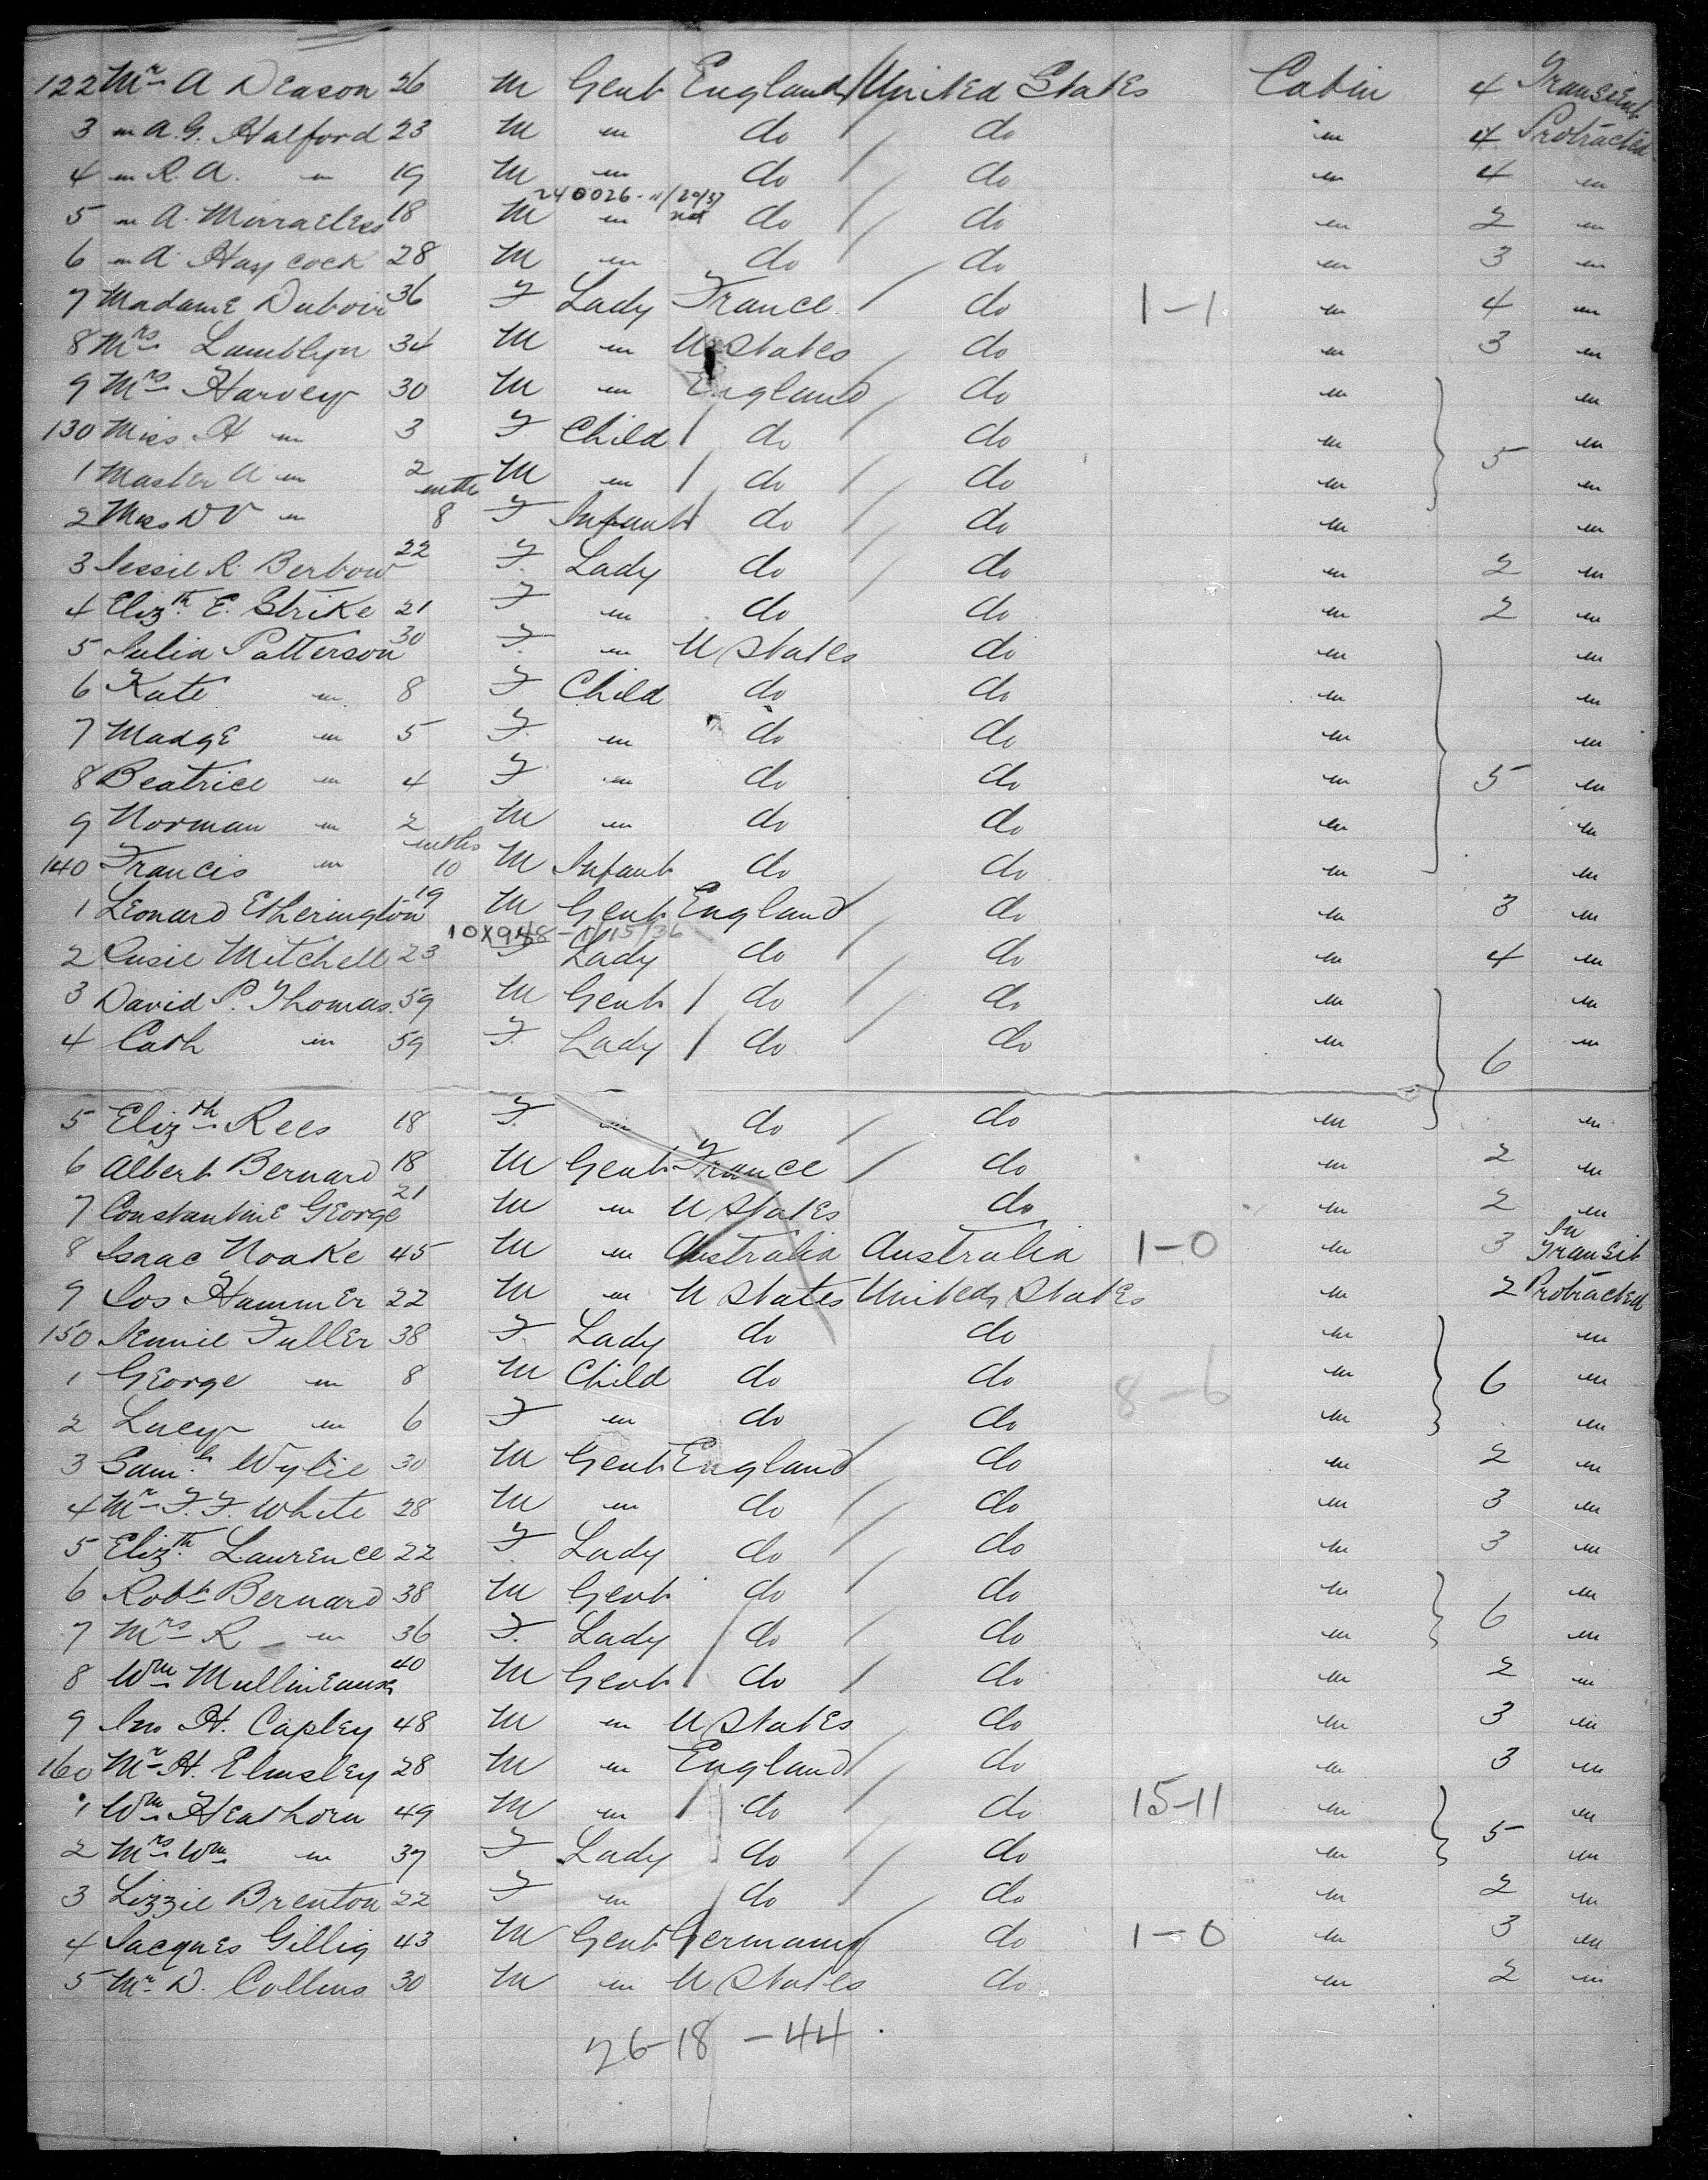 122 Mr A Deason 26 M Gent England United States Cabin 4 Transient
3 " A.G. Halford 23 M " do do " 4 Protracted
4 " R.A. " 19 M " do do " 4 "
240026 - 11/20/37
5 " A. Mirraelees 18 M " do do " 2 "
6 " A. Haycock 28 M " do do " 3 "
7 Madame Dubois 36 F Lady France do 1-1 " 4 "
8 Mrs Lamblyn 34 M " U States do " 3 "
9 Mrs Harvey 30 M " England do " "
130 Miss H " 3 F Child do do " "
1 Master A " 2 M " do do " 5 "
2 Miss D V " mths 8 F Infant do do " "
3 Jessie R. Berbow 22 F. Lady do do " 2 "
4 Elizth E. Strike 21 F " do do " 2 "
5 Julia Patterson 30 F. " U States do " "
6 Kate " 8 F Child do do " "
7 Madge " 5 F. " do do " "
8 Beatrice " 4 F " do do " 5 "
9 Norman " 2 M " do do " "
140 Francis " mths 10 M Infant do do " "
1 Leonard Etherington 19 M Gent England do " 3 "
10X948 - 1/15/36
2 Susie Mitchell 23 F Lady do do " 4 "
3 David P. Thomas 59 M Gent do do " "
4 Cath " 59 F. Lady do do " 6 "
5 Elizth Rees 18 F. " do do " "
6 Albert Bernard 18 M Gent France do " 2 "
7 Constantine George 21 M " U States do " 2 "
8 Isaac Noake 45 M " Australia Australia 1-0 " 3 In Transit
9 Jos Hammer 22 M " U States United States " 2 Protracted
150 Jennie Fuller 38 F. Lady do do " "
1 George " 8 M Child do do 8-6 " 6 "
2 Lucy " 6 F " do do " "
3 Saml Wylie 30 M Gent England do " 2 "
4 Mr F.F. White 28 M " do do " 3 "
5 Elizth Laurence 22 F. Lady do do " 3 "
6 Robt Bernard 38 M Gent do do " "
7 Mrs R " 36 F. Lady do do " 6 "
8 Wm 40 M Gent do do " 2 "
9 Jno H. Capley 48 M " U States do " 3 "
160 Mr H. Elmsley 28 M " England do " 3 "
1 Wm Heathorn 49 M " do do 15-11 " "
2 Mrs Wm " 37 F Lady do do " 5 "
3 Lizzie Brenton 22 F " do do " 2 "
4 Jacques Gillig 43 M Gent Germany do 1-0 " 3 "
5 Mr D. Collins 30 M " U States do " 2 "
26-18 - 44